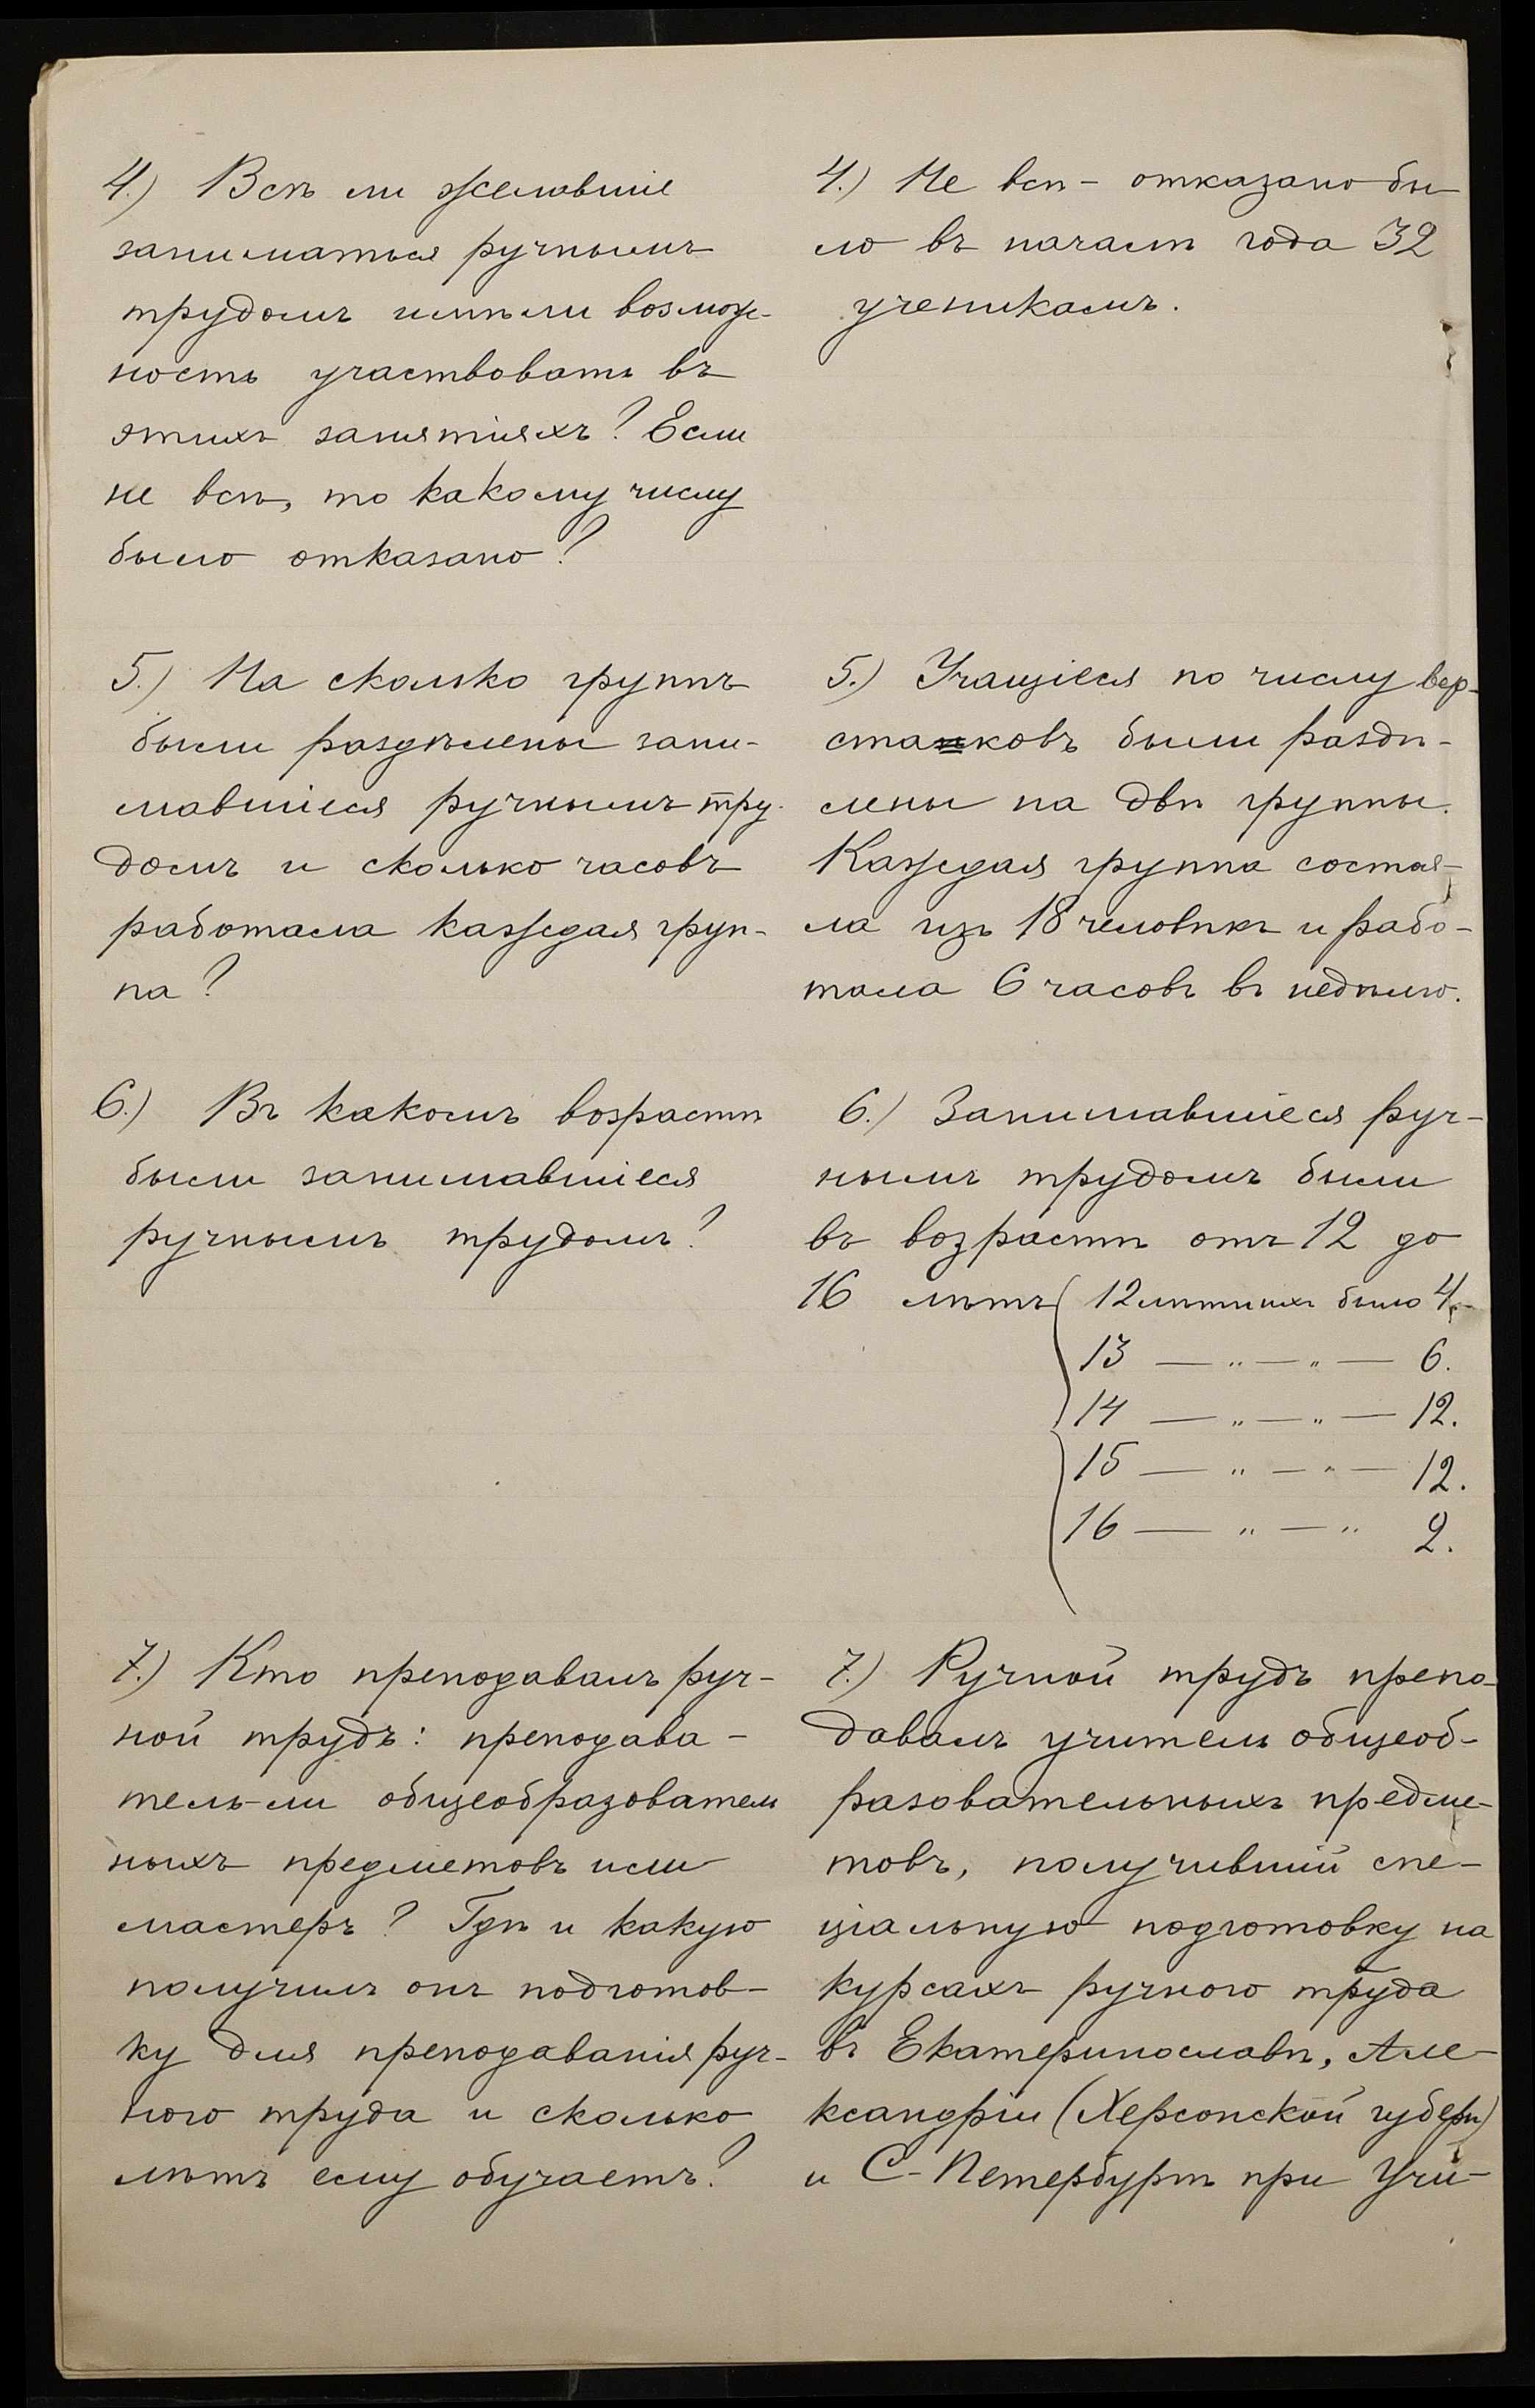 4.) Всѣ ли желавшіе
заниматься ручнымъ
трудомъ имѣли возмож-
ность участвовать въ
этихъ занятіяхъ? Если
не всѣ, то какому числу
было отказано?
4.) Не всѣ - отказано бы-
ло въ началѣ года 32
ученикамъ.
5.) На сколько группъ
были раздѣлены зани-
мавшіеся ручнымъ тру-
домъ и сколько часовъ
работала каждая груп-
па?
5.) Учащіеся по числу вер-
стаковъ были раздѣ-
лены на двѣ группы.
Каждая группа состоя-
ла изъ 18 человѣкъ и рабо-
тала 6 часовъ въ недѣлю.
6.) Въ какомъ возрастѣ
были занимавшіеся
ручнымъ трудомъ?
6.) Занимавшіеся руч-
нымъ трудомъ были
въ возрастѣ отъ 12 до
16 лѣтъ ( 12 лѣтнихъ было 4.-
13 — „ — „ — 6.
14 — „ — „ — 12.
15 — „ — „ — 12.
16 — „ — „ 2.
7.) Кто преподавалъ руч-
ной трудъ: преподава-
тель-ли общеобразователь
ныхъ предметовъ или
мастеръ? Гдѣ и какую
получилъ онъ подготов-
ку для преподаванія руч-
ного труда и сколько
лѣтъ ему обучаетъ?
7.) Ручной трудъ препо-
давалъ учитель общеоб-
разовательныхъ предме-
товъ, получившій спе-
ціальную подготовку на
курсахъ ручного труда
въ Екатеринославѣ, Але-
ксандріи (Херсонской губерн)
и С-Петербургѣ при Учи-